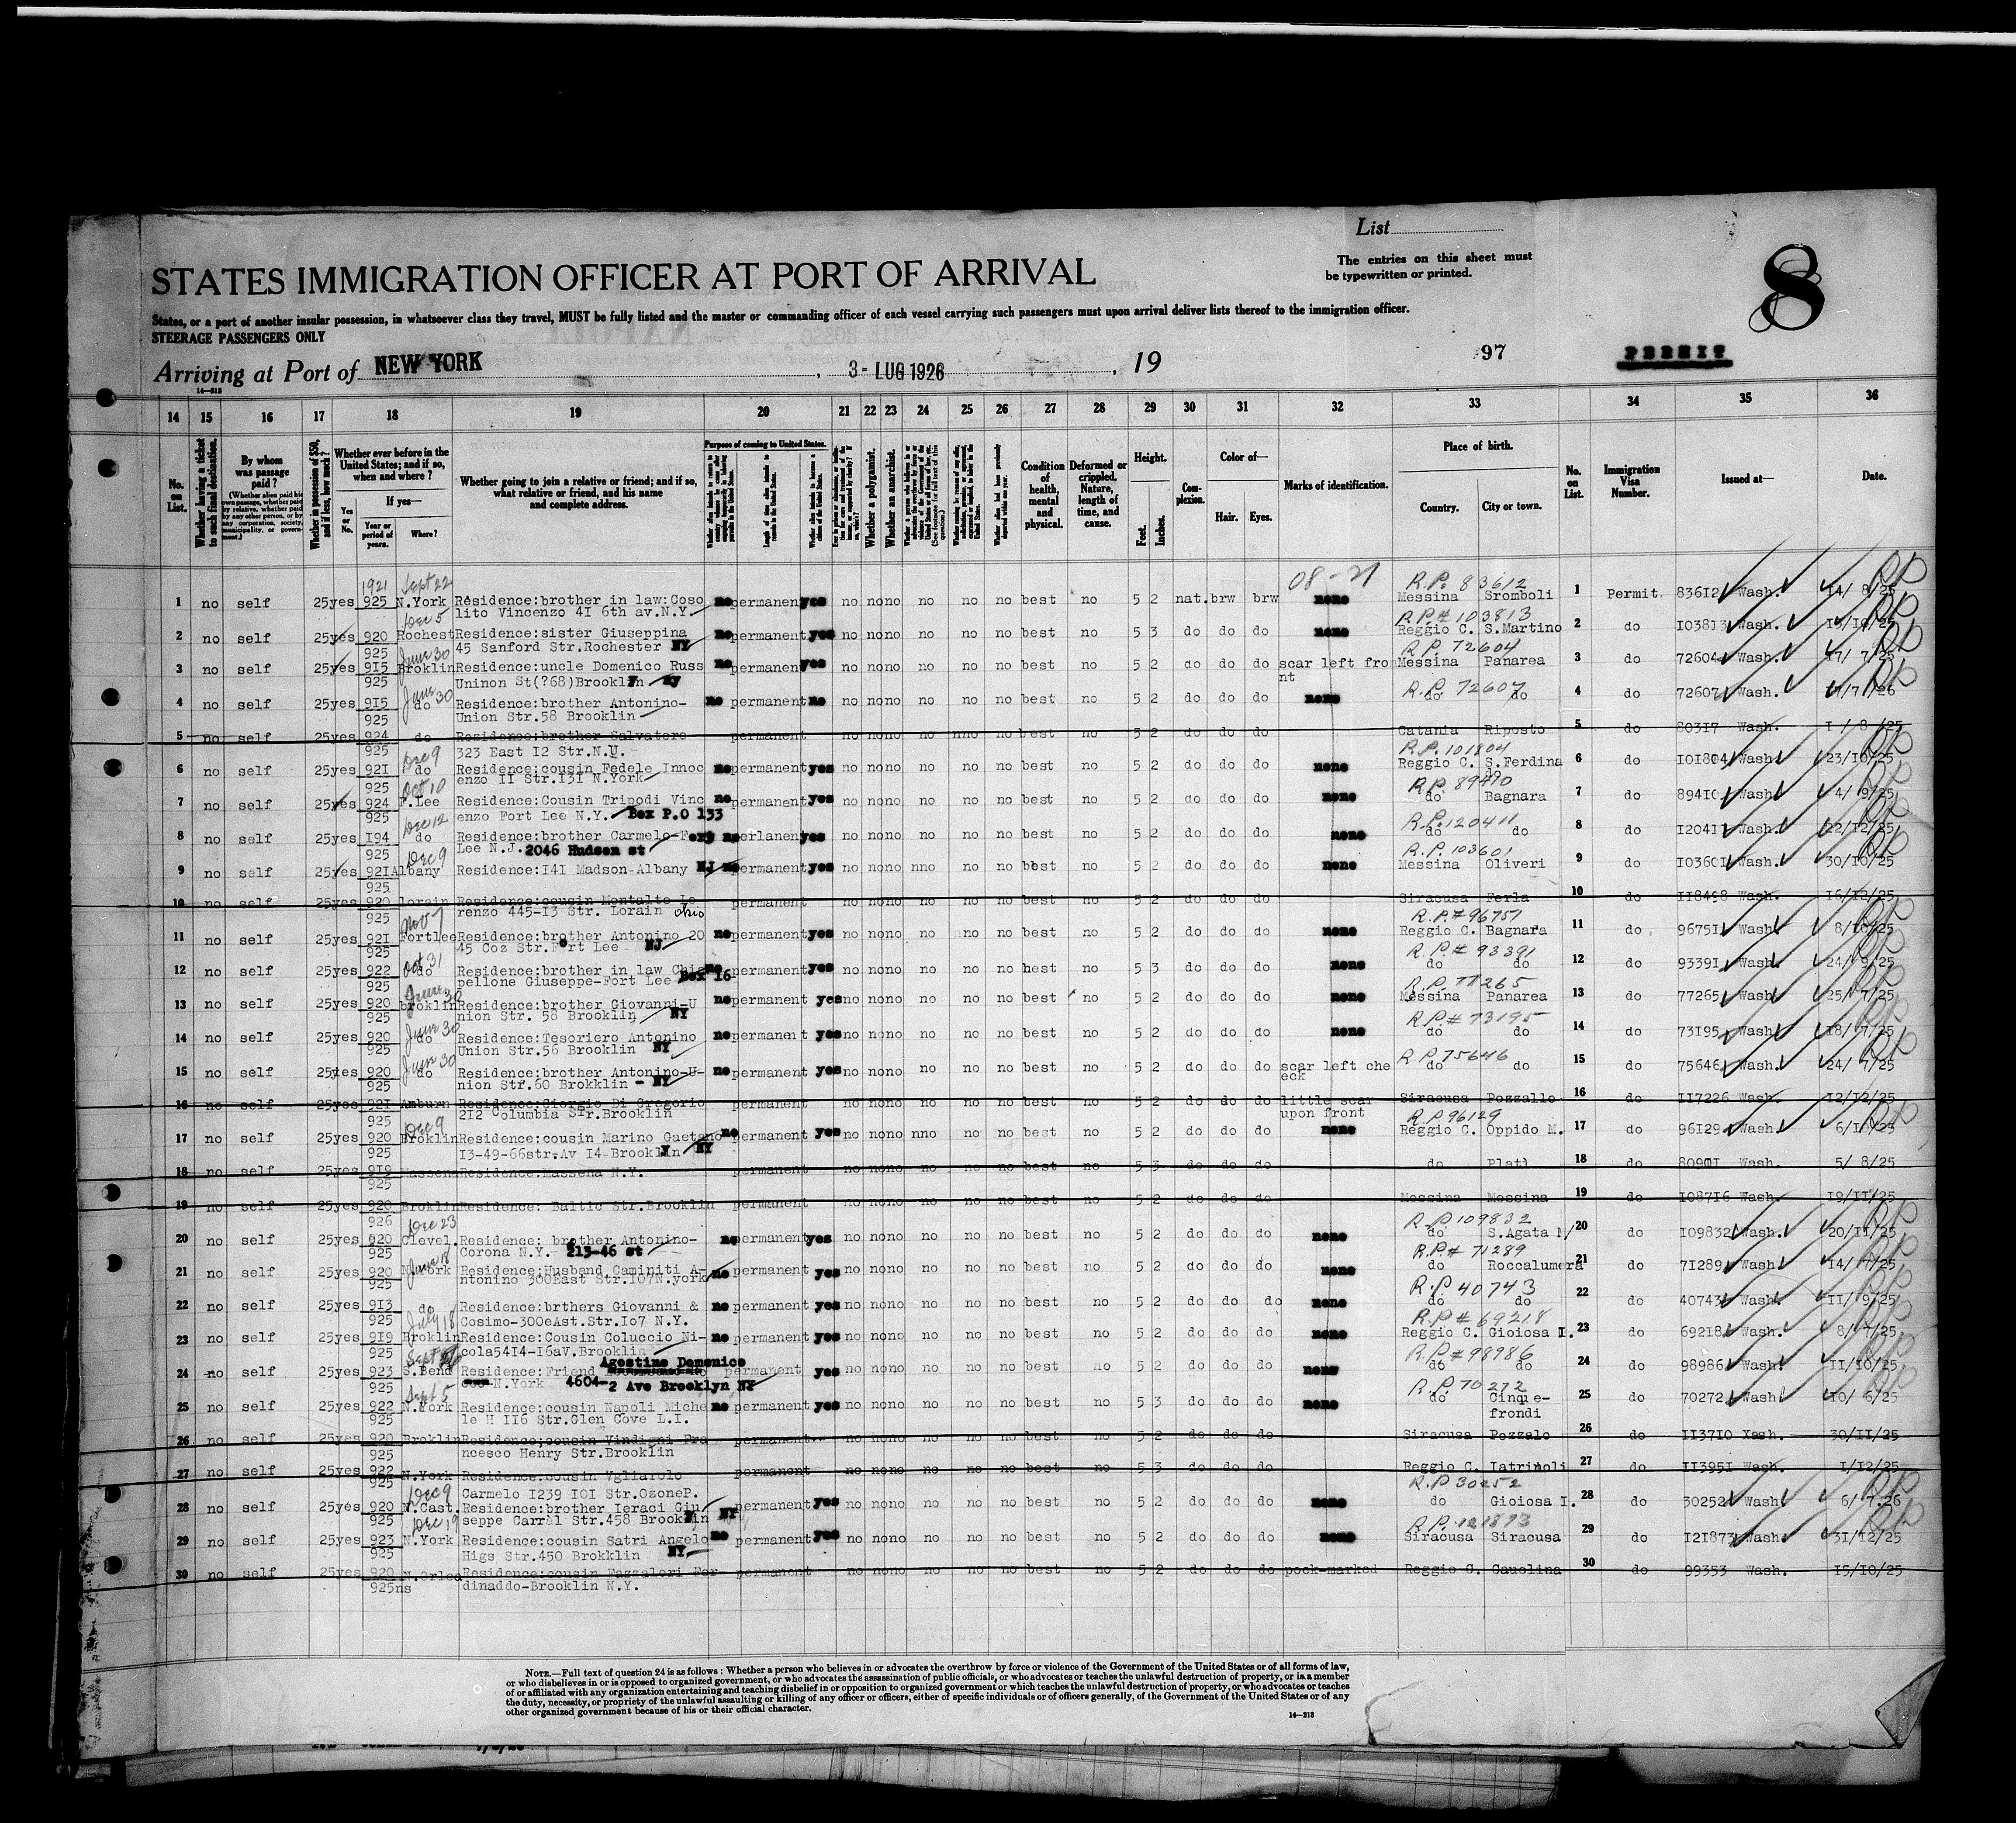 List
The entries on this sheet must
be typewritten or printed.
8
STATES IMMIGRATION OFFICER AT PORT OF ARRIVAL
States, or a port of another insular possession, in whatsoever class they travel, MUST be fully listed and the master or commanding officer of each vessel carrying such passengers must upon arrival deliver lists thereof to the immigration officer.
STEERAGE PASSENGERS ONLY
Arriving at Port of NEW YORK, 3- LUG 1926, 19
97
PERMIT
14—213
14 15 16 17 18 19 20 21 22 23 24 25 26 27 28 29 30 31 32 33 34 35 36
No. on List.
Whether having a ticket to such final destination.
By whom was passage paid?
(Whether alien paid his own passage, whether paid by relative, whether paid by any other person, or by any corporation, society, municipality, or government.)
Whether in possession of $50, and if less, how much?
Whether ever before in the United States; and if so, when and where?
If yes—
Yes or No.
Year or period of years.
Where?
Whether going to join a relative or friend; and if so, what relative or friend, and his name and complete address.
Purpose of coming to United States.
Whether a polygamist.
Whether an anarchist.
Condition of health, mental and physical.
Deformed or crippled. Nature, length of time, and cause.
Height.
Feet. Inches.
Complexion.
Color of—
Hair. Eyes.
Marks of identification.
Place of birth.
Country. City or town.
No. on List.
Immigration Visa Number.
Issued at—
Date.
1921 Sept 22 08-21 R.P. 83612
1 no self 25 yes 925 N.York Residence:brother in law:Coso no permanent yes no no no no no no best no 5 2 nat. brw brw none Messina Sromboli 1 Permit 83612 Wash. 14/ 8/25
lito Vincenzo 4I 6th av.N.Y
Dec 5 R.P.# 103813
2 no self 25 yes 920 Rochest Residence:sister Giuseppina no permanent yes no no no no no no best no 5 3 do do do none Reggio C. S.Martino 2 do I03813 Wash.
925 45 Sanford Str.Rochester NY
June 30 R.P. 72604
3 no self 25 yes 9I5 Broklin Residence:uncle Domenico Russ no permanen yes no no no no no no best no 5 2 do do do scar left fro Messina Panarea 3 do 72604 Wash. I7/ 7/25
925 Uninon St(?68)Brooklyn NY nt
June 30 R.P. 72607
4 no self 25 yes 9I5 do Residence:brother Antonino- no permanent no no no no no no no best no 5 2 do do do none do do 4 do 72607 Wash.
925 Union Str.58 Brooklin
5 no self 25 yes 924 do Residence:brother Salvatore permanent no no no no nno no best no 5 2 do do do Catania Riposto 5 do 80317 Wash. I / 8 /25
925 323 East I2 Str.N.U.
Dec 9 R.P. 101804
6 no self 25 yes 92I do Residence:cousin Fedele Innoc no permanent yes no no no no no no best no 5 2 do do do none Reggio C. S.Ferdina 6 do I0I804 Wash. 23/10/25
925 enzo II Str.I3I N.York do
Oct 10 R.P. 89410
7 no self 25 yes 924 F.Lee Residence:Cousin Tripodi Vinc no permanent yes no no no no no no best no 5 2 do do do none do Bagnara 7 do 894I0 Wash. 4/ 9/25
925 enzo Fort Lee N.Y. Box P.O 133
Dec 12 R.P. 120411
8 no self 25 yes I94 do Residence:brother Carmelo-Fort no perlanen yes no no no no no no best no 5 2 do do do none do do 8 do I204I1 Wash. 22/12/25
925 Lee N.J. 2046 Hudson st
Dec 9 R.P. 103601
9 no self 25 yes 92I Albany Residence:I4I Madson-Albany NJ no permanent yes no no no nno no no best no 5 2 do do do none Messina Oliveri 9 do I0360I Wash. 30/10/25
925
10 no self 25 yes 920 lorain Residence:cousin Montalto Lo permanent no no no no no no best no 5 2 do do do Siracusa Ferla 10 do II8498 Wash. I6/I2/25
925 renzo 445-I3 Str. Lorain Ohio
Nov 7 R.P.# 96751
11 no self 25 yes 92I Fortlee Residence:brother Antonino 20 no permanent yes no no no no no no best no 5 2 do do do none Reggio C. Bagnara 11 do 9675I Wash. 8/10/25
925 45 Coz Str.Fort Lee NJ
Oct 31 R.P.# 93391
12 no self 25 yes 922 do Residence:brother in law Chia no permanent yes no no no no no no best no 5 3 do do do none do do 12 do 9339I Wash. 24/ 9/25
925 pellone Giuseppe-Fort Lee Box 16
June 30 R.P. 77265
13 no self 25 yes 920 broklin Residence:brother Giovanni-U no permanent yes no no no no no no best no 5 2 do do do none Messina Panarea 13 do 77265 Wash 25/ 7/25
925 nion Str. 58 Brooklin NY
June 30 R.P.# 73195
14 no self 25 yes 920 do Residence:Tesoriero Antonino no permanent yes no no no no no no best no 5 2 do do do none do do 14 do 73I95 Wash I8/ 7/25
925 Union Str.56 Brooklin NY
June 30 R.P. 75646
15 no self 25 yes 920 do Residence:brother Antonino-U- no permanent yes no no no no no no best no 5 2 do do do scar left che do do 15 do 75646 Wash. 24/ 7/25
925 nion Str.60 Brokklin - NY eck
16 no self 25 yes 92I Amburn Residence:Giorgio Di Gregorio permanent no no no no no no best no 5 2 do do do little scar Siracusa Pozzallo 16 do II7226 Wash. I2/I2/25
925 2I2 Columbia Str.Brooklin upon front
Dec 9 R.P. 96129
17 no self 25 yes 920 Broklin Residence:cousin Marino Gaetano no permanent yes no no no nno no no best no 5 2 do do do none Reggio C. Oppido M. 17 do 96I29 Wash.
925 I3-49-66str.Av I4-Brooklyn NY
18 no self 25 yes 9I9 Massena Residence:Massena N.Y. permanent no no no no no no best no 5 3 do do do do Plati 18 do Wash. 5/ 8/25
925
19 no self 25 yes 920 Broklin Residence: Baltic Str.Brooklin permanent no no no no no no best no 5 2 do do do Messina Messina 19 do I087I6 Wash. I9/II/25
926 Dec 23 R.P. 109832
20 no self 25 yes 920 Clevel. Residence: brother Antonino- no permanent yes no no no no no no best no 5 2 do do do none do S.Agata M/ 20 do I09832 Wash. 20/II/25
925 Corona N.Y. 213-46 st
June 18 R.P.# 71289
21 no self 25 yes 920 N.York Residence:Husband Caminiti A- no permanent yes no no no no no no best no 5 2 do do do none do Roccalumera 21 do 7I289 Wash. I4/ 7/25
925 ntonino 300East Str.I07N.york
R.P. 40743
22 no self 25 yes 9I3 do Residence:brthers Giovanni & no permanent yes no no no no no no best no 5 2 do do do none do do 22 do 40743 Wash. II/ 9/25
925 Cosimo-300eAst.Str.Io7 N.Y.
July 18 R.P.# 69218
23 no self 25 yes 9I9 Broklin Residence:Cousin Coluccio Ni- no permanent yes no no no no no no best no 5 2 do do do none Reggio C. Gioiosa I. 23 do 692I8 Wash. 8/ 7/25
925 cola54I4-I6aV.Brooklin
Sept R.P.# 98986
24 no self 25 yes 923 S.Bend Residence:Friend Agostino Domenico permanent yes no no no no no no best no 5 2 do do do none do do 24 do 98986 Wash. II/10/25
925 N.York 4604-2 Ave Brooklyn NY
Sept 5 R.P. 70272
25 no self 25 yes 922 N.York Residence:cousin Napoli Miche no permanent yes no no no no no no best no 5 3 do do do none do Cinque- 25 do 70272 Wash. I0/ 6/25
925 le H II6 Str.Glen Cove L.I. frondi
26 no self 25 yes 920 Broklin Residence;cousin Vindigni Fra permanent no no no no no no best no 5 2 do do do Siracusa Pozzalo 26 do II37I0 Xash. 30/II/25
925 ncesco Henry Str.Brooklin
27 no self 25 yes 922 N.York Residence:cousin Vgliarolo permanent no no no no no no best no 5 3 do do do Reggio C. Iatrinoli 27 do II395I Wash. I/I2/25
925 Carmelo I239 I0I Str.OzoneP.
Dec 9 R.P. 30252
28 no self 25 yes 920 N.Cast. Residence:brother Ieraci Giu permanent yes no no no no no no best no 5 2 do do do none do Gioiosa I. 28 do 30252 Wash
925 seppe Carral Str.458 Brooklyn NY
Dec 19 R.P. 121873
29 no self 25 yes 923 N.York Residence:cousin Satri Angelo no permanent yes no no no no no no best no 5 2 do do do none Siracusa Siracusa 29 do I2I873 Wash. 3I/I2/25
925 Higs Str.450 Brokklin NY
30 no self 25 yes 920 N.Orlea Residence:cousin Fazzalori Fer permanent no no no no no no best no 5 2 do do do pock-marked Reggio C. Cauolina 30 do 99353 Wash. I5/I0/25
925 ns dinaddo-Brooklin N.Y.
NOTE.—Full text of question 24 is as follows: Whether a person who believes in or advocates the overthrow by force or violence of the Government of the United States or of all forms of law,
or who disbelieves in or is opposed to organized government, or who advocates the assassination of public officials, or who advocates or teaches the unlawful destruction of property, or is a member
of or affiliated with any organization entertaining and teaching disbelief in or opposition to organized government or which teaches the unlawful destruction of property, or who advocates or teaches
the duty, necessity, or propriety of the unlawful assaulting or killing of any officer or officers, either of specific individuals or of officers generally, of the Government of the United States or of any
other organized government because of his or their official character.
14—213